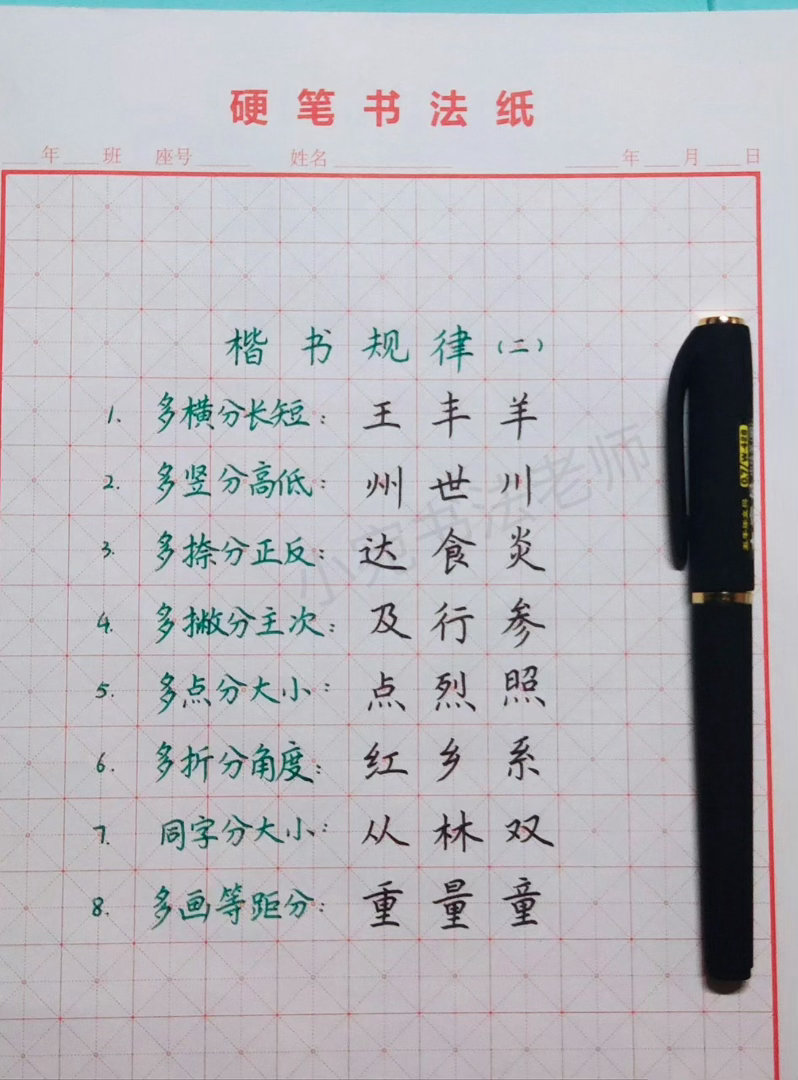 硬笔书法纸
年 班 座号 姓名 年 月 日
楷书规律(二)
1. 多横分长短: 王 丰 羊
2. 多竖分高低: 州 世 川
3. 多捺分正反: 达 食 炎
4. 多撇分主次: 及 行 参
5. 多点分大小: 点 烈 照
6. 多折分角度: 红 乡 系
7. 同字分大小: 从 林 双
8. 多画等距分: 重 量 童